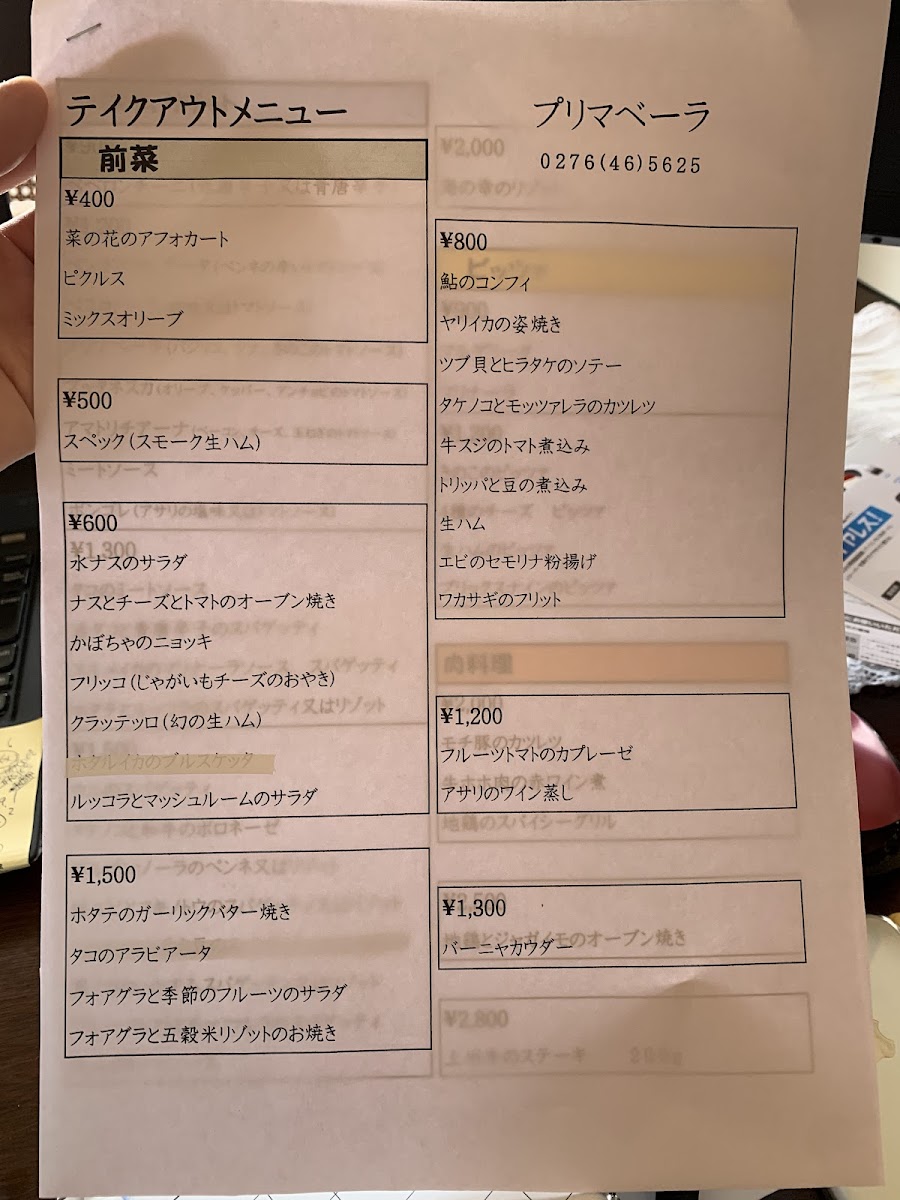 テイクアウトメニュー
プリマベーラ
0276(46)5625
前菜
¥400
菜の花のアフォカート
ピクルス
ミックスオリーブ
¥500
スペック(スモーク生ハム)
¥600
水ナスのサラダ
ナスとチーズとトマトのオーブン焼き
かぼちゃのニョッキ
フリッコ(じゃがいもチーズのおやき)
クラッテッロ(幻の生ハム)
ホタルイカのブルスケッタ
ルッコラとマッシュルームのサラダ
¥1,500
ホタテのガーリックバター焼き
タコのアラビアータ
フォアグラと季節のフルーツのサラダ
フォアグラと五穀米リゾットのお焼き
¥800
鮎のコンフィ
ヤリイカの姿焼き
ツブ貝とヒラタケのソテー
タケノコとモッツァレラのカツレツ
牛スジのトマト煮込み
トリッパと豆の煮込み
生ハム
エビのセモリナ粉揚げ
ワカサギのフリット
肉料理
¥1,200
フルーツトマトのカプレーゼ
アサリのワイン蒸し
地鶏のスパイシーグリル
¥1,300
バーニャカウダー
¥2,800